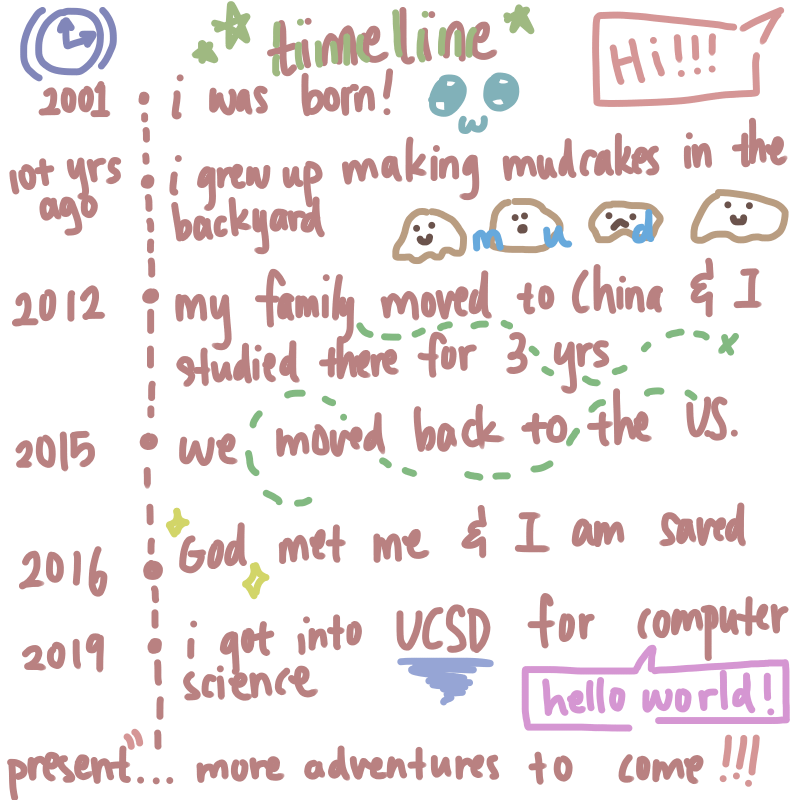 timeline
Hi!!!
2001 i was born!
10+ yrs ago i grew up making mudcakes in the
backyard
mud
2012 my family moved to China & I
studied there for 3 yrs
2015 we moved back to the US.
2016 God met me & I am saved
2019 i got into UCSD for computer
science
hello world!
present... more adventures to come!!!